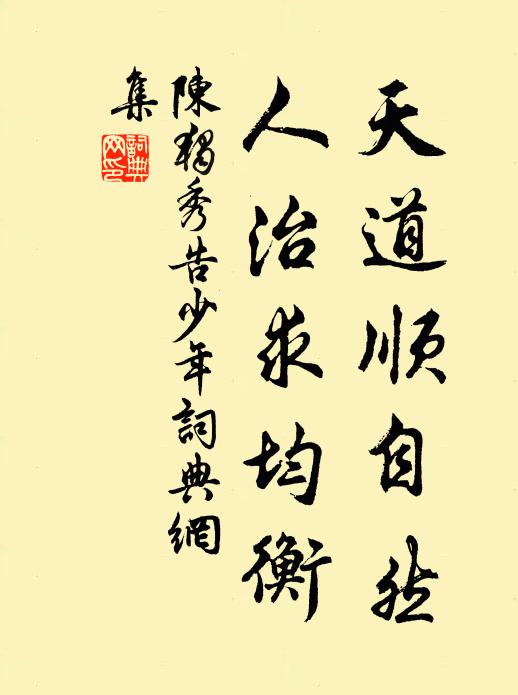 天道順自然
人治求均衡
陳獨秀告少年詞典網
集
詞典網印